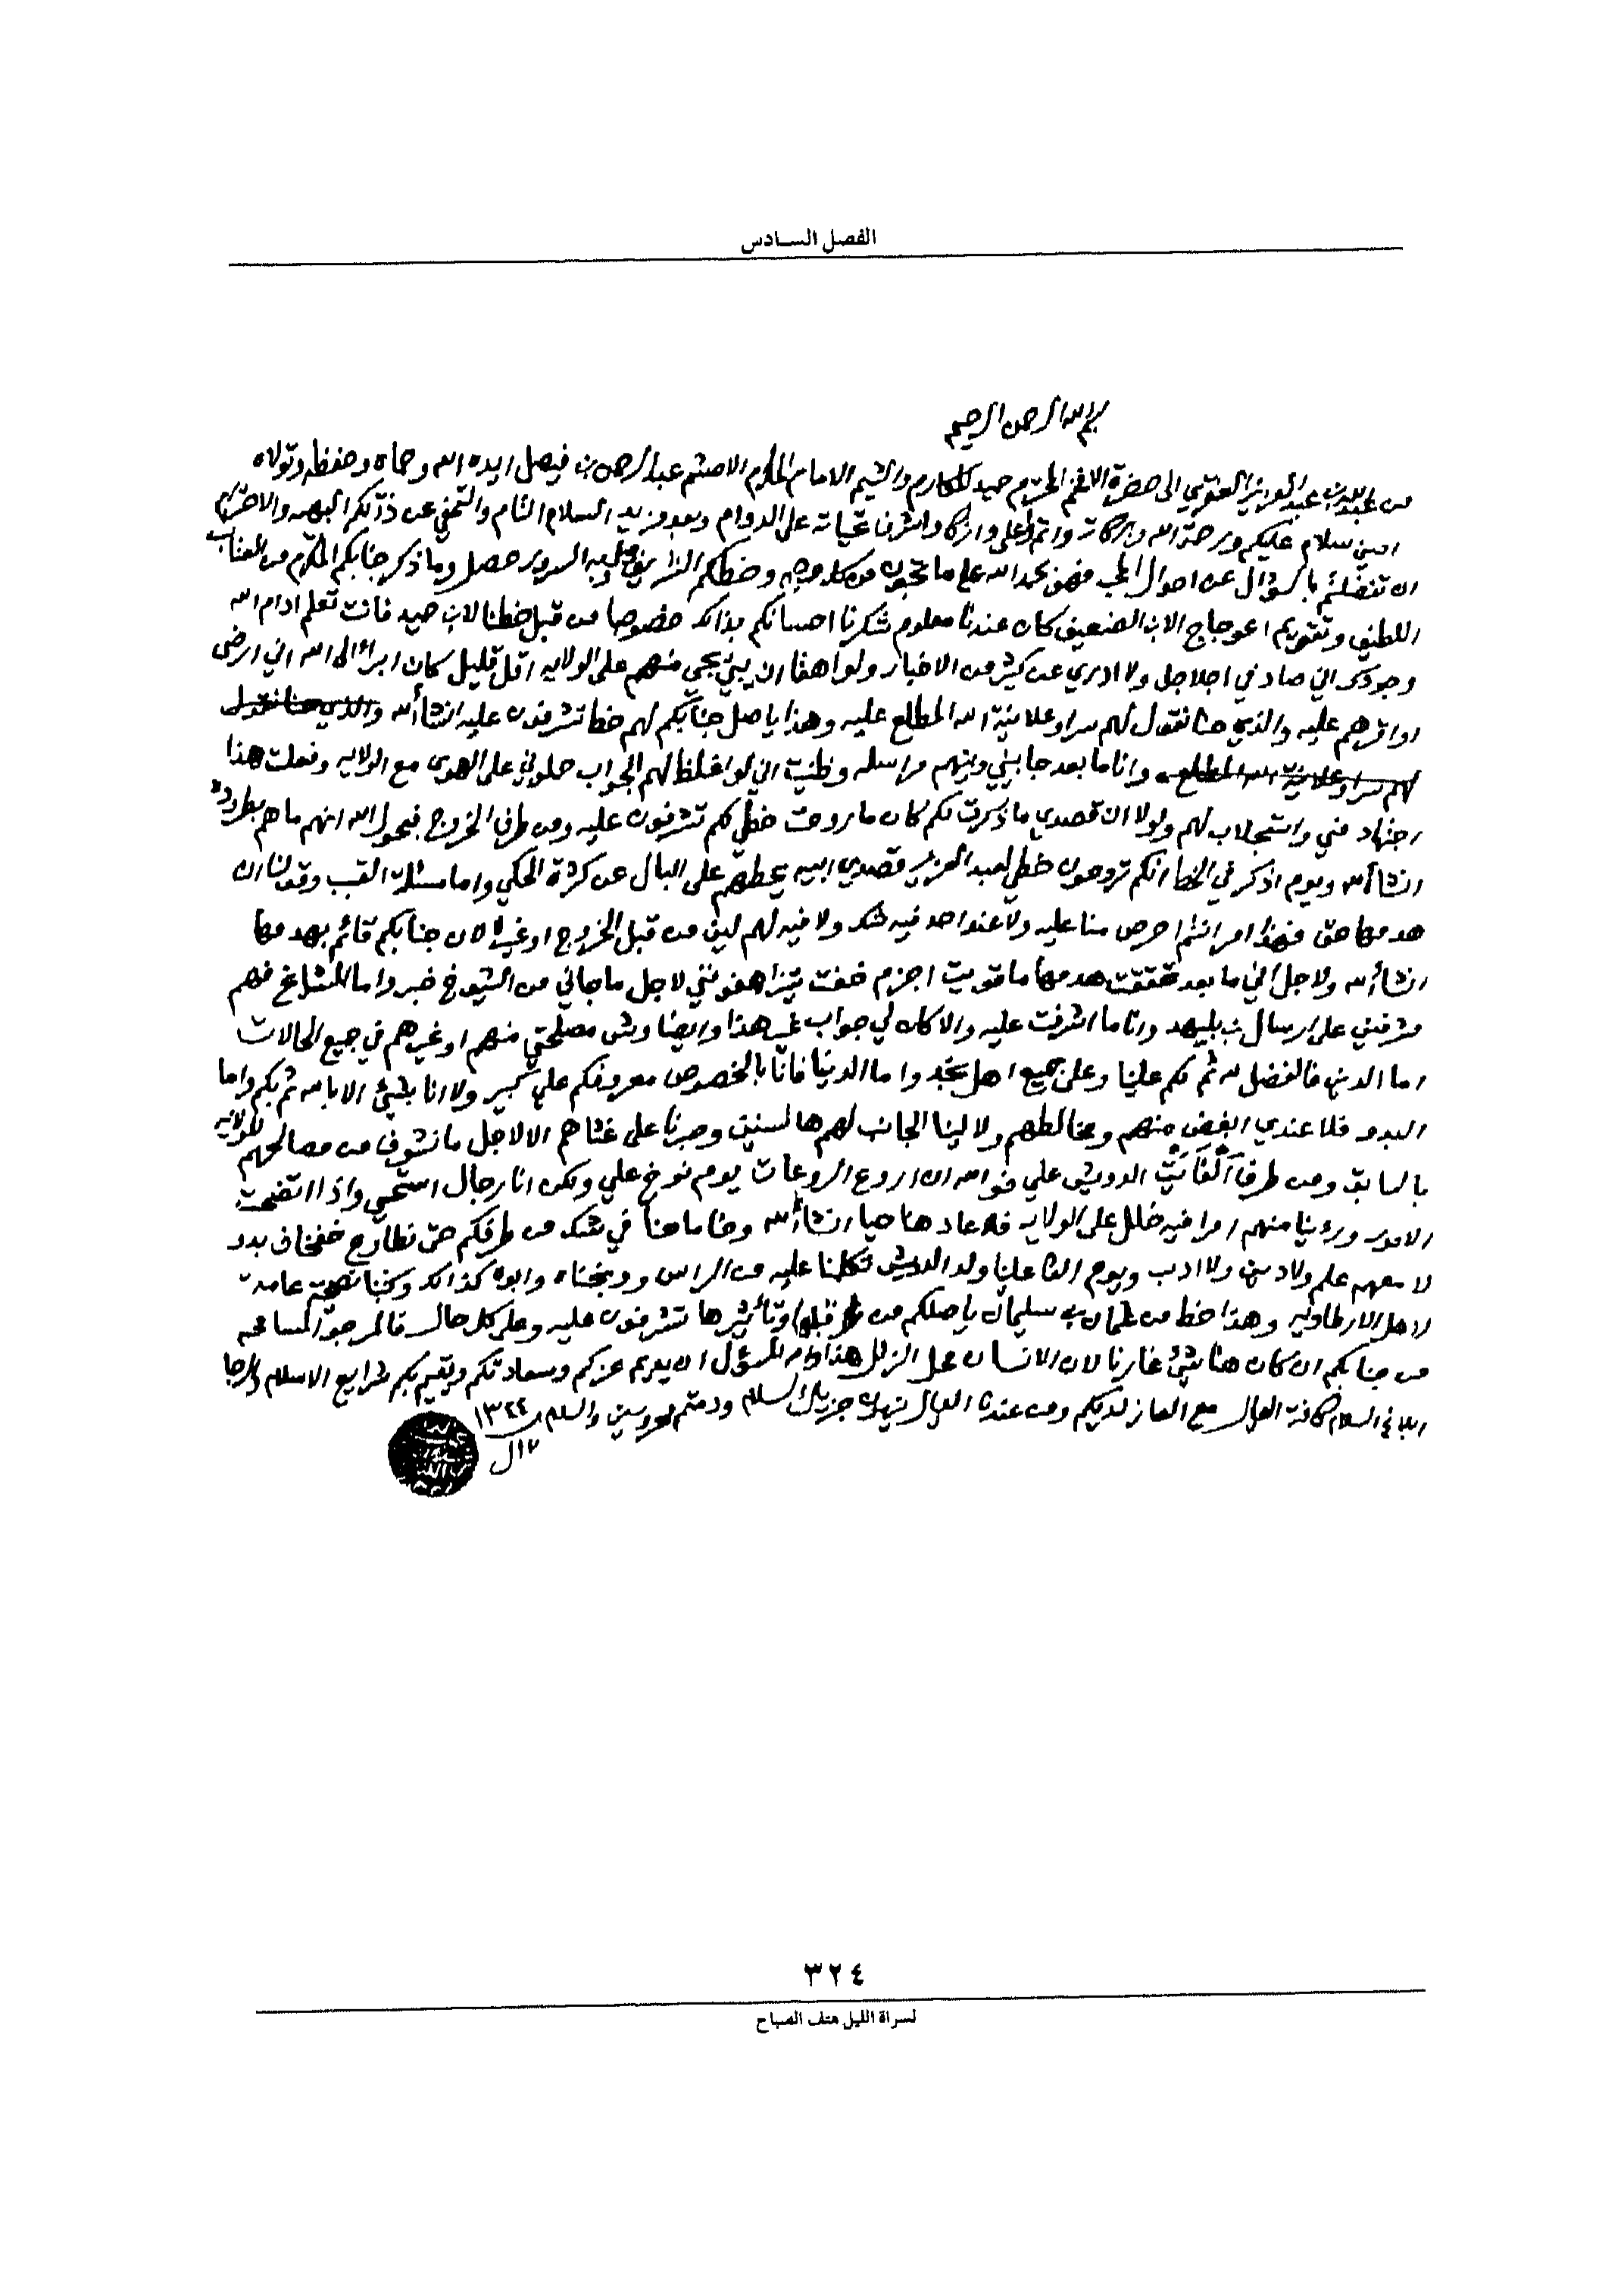 الفصل السادس
بسم الله الرحمن الرحيم
من عبدالله بن عبدالعزيز العنقري الى حضرة الافخم المحترم حميد المكارم والشيم الامام المكرم الاحشم عبدالرحمن بن فيصل ايده الله وحماه وحفظه وتولاه
امين سلام عليكم ورحمة الله وبركاته واتم واعلى وازكا واشرف تحياته على الدوام وبعد مزيد السلام التام والتفحص عن ذاتكم البهيه والاحترام
ان تفضلتم بالسؤال عن احوال المحب فهو بحمد الله على ما تحبون من كل وجه وخطكم الشريف وبه السرور حصل وما ذكر جنابكم المكرم من العتاب
اللطيف وتقويم اعوجاج الابن الضعيف كان عندنا معلوم شكرنا احسانكم بذالك خصوصا من قبل خطنا لابن حميد فانت تعلم ادام الله
وجودك اني صادفي اجلاجل ولا ادري عن كثير من الاخبار ولو اهقا ان يبي يجي منهم على الولايه اقل قليل كان ابرا الى الله اني ارضى
او اقرهم عليه والذي حنا نقول لهم سرا وعلانية الله المطلع عليه وهذا ياصل جنابكم لهم خط تشرفون عليه انشاالله والذي حنا نقول
لهم سرا وعلانية الله المطلع وانا ما بعد جا بيني وبينهم مراسله وظنيت اني لو اغلظ لهم الجواب حلوني على الهوى مع الولايه وفعلت هذا
اجتهاد مني واستجلاب لهم ولولا ان قصدي ما ذكرت لكم كان ما روحت خطي لكم تشرفون عليه ومن طرف الخروج فبحول الله انهم ما هم بطروده
انشاالله ويوم اذكر في الخط انكم تروحون خطي لعبد العزيز قصدي ابيه يحطهم على البال عن كثرة الحكي واما مسئلة القبب وقولنا ان
هدمها حق فهذا امر انتم احرص منا عليه ولا عند احد فيه شك ولا فيه لهم لين من قبل الخروج او غيره لان جنابكم قائم بهدمها
انشاالله ولاجل اني ما بعد تحققت هدمها ما قويت اجزم خفت يتزاهفونني لاجل ما جاني من الشيوخ خبر واما المشايخ فهم
مشرفيني على ارسال بن بليهد وانا ما اشرفت عليه والا كان لي جواب غير هذا وايضا وش مصلحتي منهم او غيرهم في جميع الحالات
اما الدين فالفضل لله ثم لكم علينا وعلى جميع اهل نجد واما الدنيا فانا بالخصوص معروفكم علي كبير ولا انا بشئ الا بالله ثم بكم واما
البدو فلا عندي ابغض منهم ومخالطهم ولا لينا الجانب لهم هالسنين وصبرنا على غثاهم الا لاجل ما نشوف من مصالحهم للولايه
بالسابق ومن طرف الدويش علي فوالله ان اروع الروعات يوم نوخ علي ولكن انا رجال استحي واذا اتضحت
الامور وروينا منهم امرا فيه خلل على الولايه فلا عاد هنا حيا انشاالله وحنا ما حنا في شك من طرفكم حتى نطارح خفخاف بدو
لا معهم علم ولا دين ولا ادب ويوم الفا علينا ولد الدويش تكلنا عليه من الراس ووبخناه وابوه كذالك وكتبنا نصيحة عامه
لاهل الارطاويه وهذا خط من عثمان بن سليمان ياصلكم من قبلها وتأثيرها تشرفون عليه وعلى كل حال فالمرجو المسامحه
من جنابكم ان كان هنا شئ غارنا لان الانسان محل الزلل هذا والله المسؤل ان يديم عزكم وسعادتكم ويقيم بكم شرايع الاسلام والرجا
ابلاغ السلام كافة العيال مع العزاز لديكم ومن عندنا العيال ينهون جزيل السلام ودمتم محروسين والسلام ١٣٤٤
١٧ ل
٣٢٤
لسراة الليل هتف الصباح